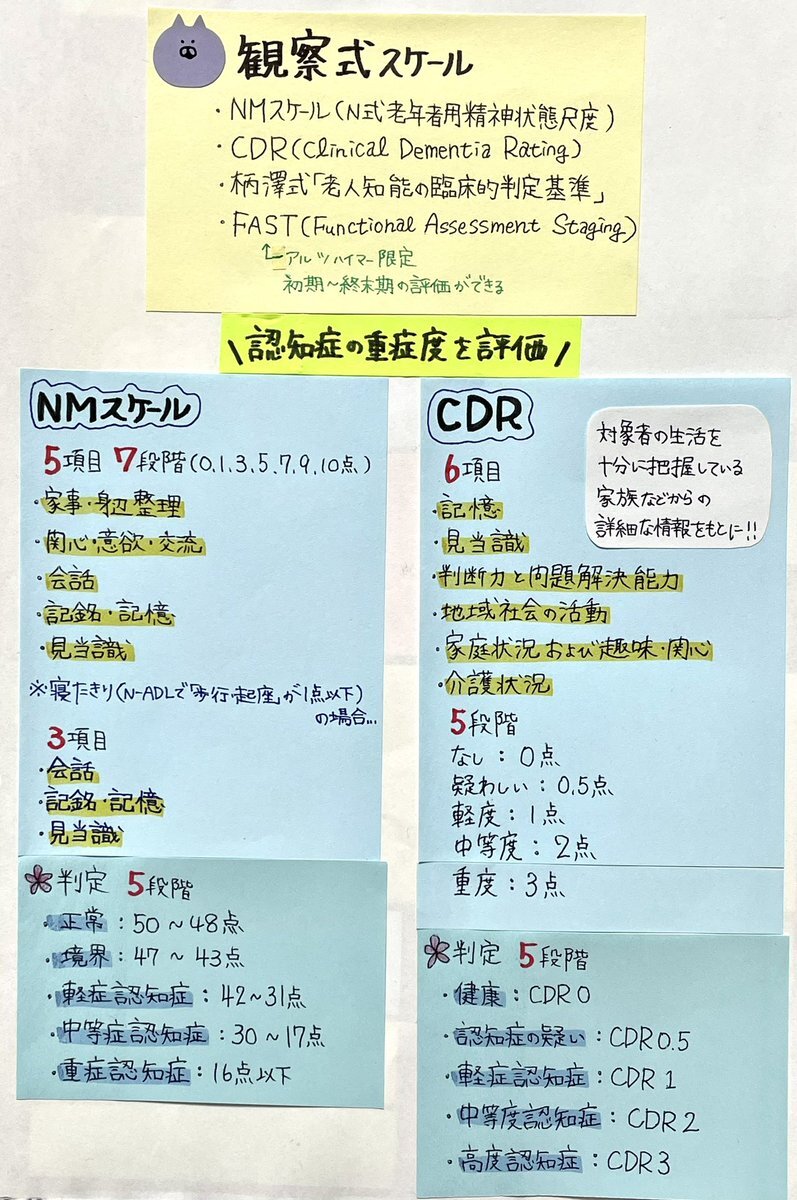 観察式スケール
・NMスケール(N式老年者用精神状態尺度)
・CDR(Clinical Dementia Rating)
・柄澤式「老人知能の臨床的判定基準」
・FAST(Functional Assessment Staging)
アルツハイマー限定
初期〜終末期の評価ができる
\認知症の重症度を評価/
NMスケール
5項目 7段階(0,1,3,5,7,9,10点)
・家事・身辺整理
・関心・意欲・交流
・会話
・記銘・記憶
・見当識
※寝たきり(N-ADLで「歩行・起座」が1点以下)
の場合...
3項目
・会話
・記銘・記憶
・見当識
判定 5段階
・正常:50〜48点
・境界:47〜43点
・軽症認知症:42〜31点
・中等症認知症:30〜17点
・重症認知症:16点以下
CDR
対象者の生活を
十分に把握している
家族などからの
詳細な情報をもとに!!
6項目
・記憶
・見当識
・判断力と問題解決能力
・地域社会の活動
・家庭状況および趣味・関心
・介護状況
5段階
なし:0点
疑わしい:0.5点
軽度:1点
中等度:2点
重度:3点
判定 5段階
・健康:CDR 0
・認知症の疑い:CDR 0.5
・軽症認知症:CDR 1
・中等度認知症:CDR 2
・高度認知症:CDR 3